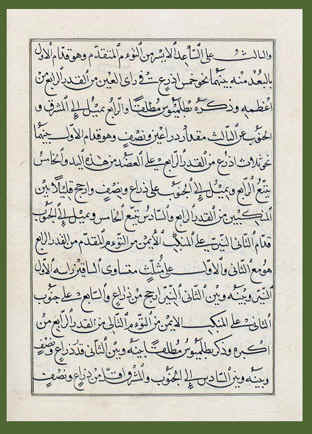 والثالث على الساعد الايسر من التوءم المتقدم وهو قدام الاول
بالبعد منه بينهما نحو خمس اذرع في راى العين من القدر الرابع من
اعظمه وذكره بطلميوس مطلقا والرابع يميل الى المشرق و
الجنوب عن الثالث مقدار ذراعين ونصف وهو قدام الاول بينهما
نحو ثلاث اذرع من القدر الرابع على العضد من هذه اليد والخامس
يتبع الرابع ويميل الى الجنوب على ذراع ونصف وارجح قليلا بين
المنكبين من القدر الرابع والسادس يتبع الخامس ويميل الى الجنوب
قدام الثانى النير على المنكب الايمن من التوءم المقدم من القدر الرابع
وهو مع الثانى والاول على مثلث متساوى الساقين راسه الاول
النير وبينه وبين الثانى النير ارجح من ذراع والسابع على جنوب
الثانى على المنكب الايمن من التوءم الثانى من القدر الرابع من
اكبره وذكر بطلميوس مطلقا بينه وبين الثانى قدر ذراع ونصف
وبينه وبين السادس الى الجنوب والمشرق اقل من ذراع ونصف